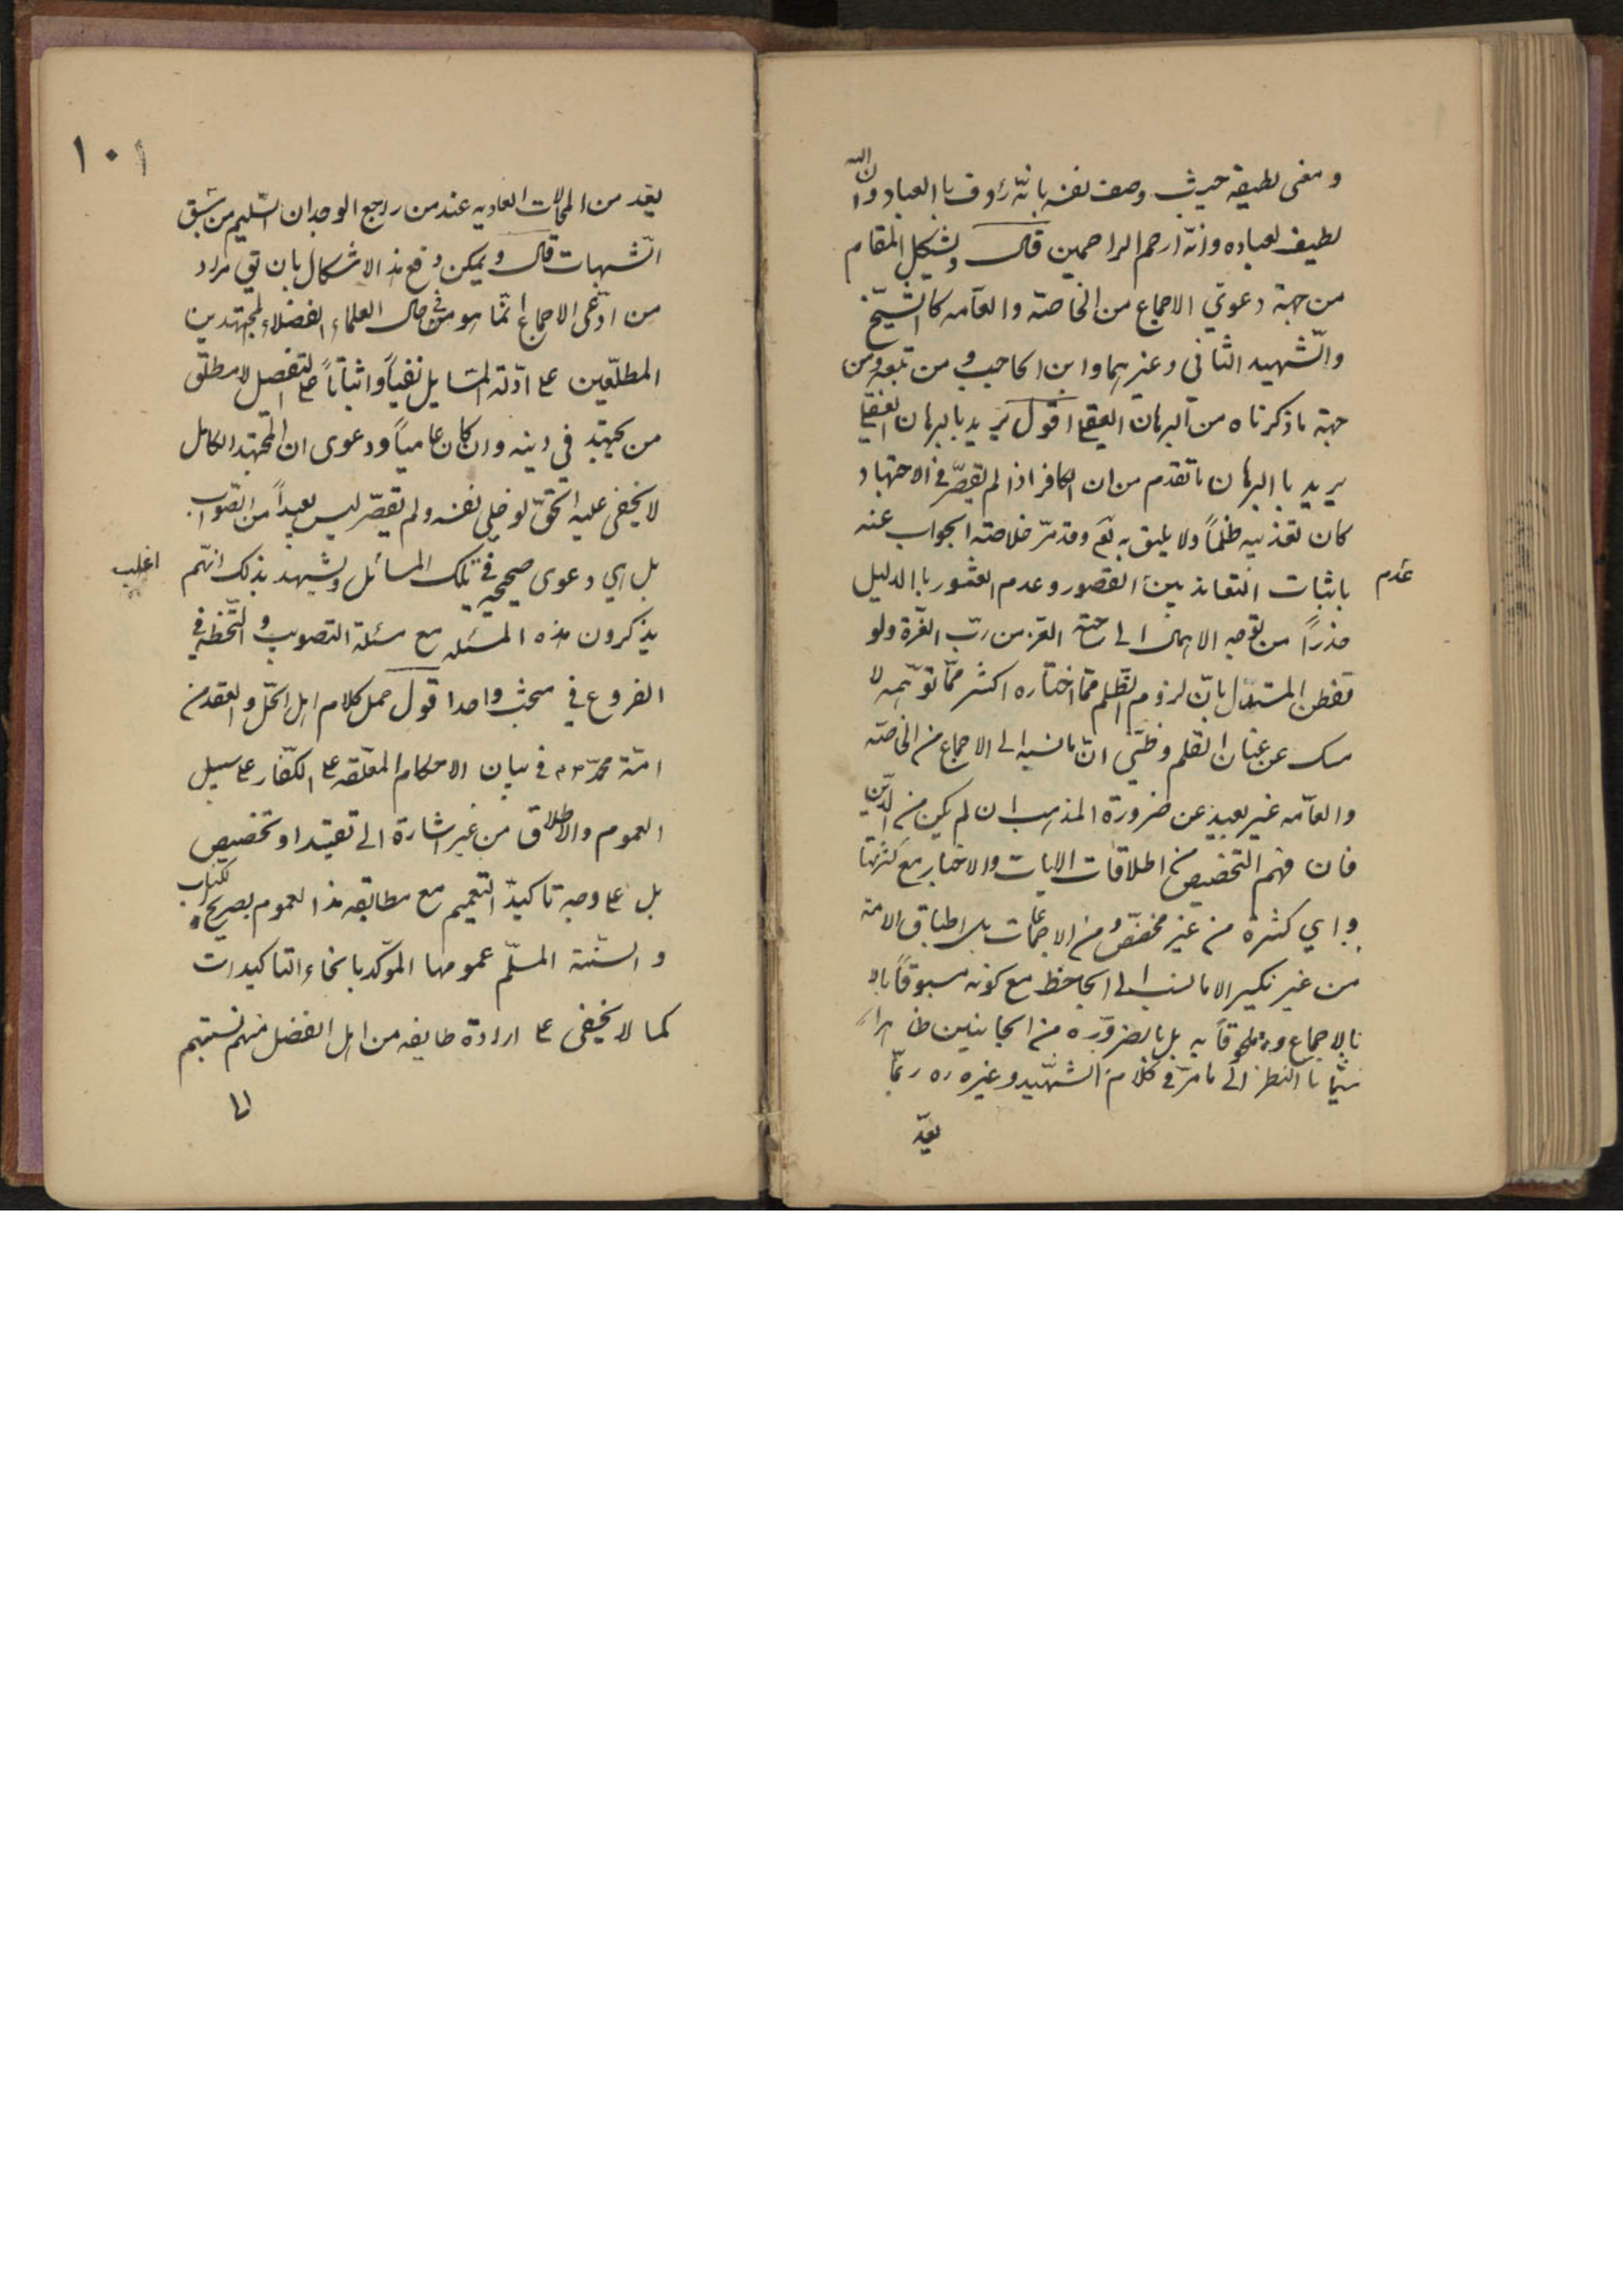 ومغى لطيفة حيث وصف نفسه بانّه رؤوف باالعباد وانّ الله
لطيف لعباده وانّه ارحم الراحمين قال ويشكل المقام
من جهة دعوى الاجماع من الخاصّة والعامه كالشّيخ
والشّهيد الثانى وغيرهما وابن الحاجب ومن تبعه ومن
جهة ماذكرناه من البرهان العقلى اقول يريد بالبرهان العقلى
يريد باالبرهان ماتقدم من ان الكافر اذا لم يقصّر فى الاجتهاد
كان تعذيبه ظلماً ولا يليق به تع وقد مرّ خلاصته الجواب عنه
باثبات التعاند بين القصور وعدم العثور باالدليل
عدم
حذراً من توجيه الاهمال الى ساحة العز من ربّ العزّة ولو
تفطن المستدل بانّ لزوم الظلم ممّا اختاره اكثر ممّا توهّمه لا
مسك عن عنان القلم وظنّى انّ مانسبه الى الاجماع من الخاصّه
والعامّه غير بعيد عن ضرورة المذهب ان لم يكن من الدّين
فان فهم التخصيص من اطلاقات الايات والاخبار مع كثرتها
واي كثرة من غير مخصّص ومن الاجماعات بل اطباق الامة
من غير نكير الا مانسب الى الجاحظ مع كونه مسبوقاً بالا
بالاجماع وملحوقاً به بل بالضرورة من الجانبين ظاهراً
سيّما باالنظر الى مامرّ فى كلام الشهيد وغيره ره ربّما
يعدّ
١٠١
يعد من المحالات العاديه عند من راجع الوجدان السّليم من سبق
الشّبهات قال ويمكن دفع هذ الاشكال بان يق مراد
من ادّعى الاجماع انّما هو فى حال العلماء الفضلاء المجتهدين
المطلّعين على ادّلة المسايل نفياً واثباتاً على التفصل لا مطلق
من يجتهد في دينه وان كان عامياً ودعوى ان المجتهد الكامل
لا يخفى عليه الحقّ لو خلى نفسه ولم يقصّر ليس بعيداً من الصّواب
بل هي دعوى صحيحه فى تلك المسائل ويشهد بذلك انّهم
اغلب
يذكرون هذه المسئله مع مسئلة التصويب والتّخطئة فى
الفروع في مبحث واحد اقول حمل كلام اهل الحلّ والعقد من
امّة محمّد ص م فى بيان الاحكام المعلّقه على الكفّار على سبيل
العموم والاطلاق من غير اشارة الى تقييد او تخصيص
بل على وجه تاكيد التعميم مع مطابقه هذا العموم بصريح الكتاب
والسّنّة المسلّم عمومها المؤكّد بانحاء التاكيدات
كما لا يخفى على ارادة طايفه من اهل الفضل منهم نسبتهم
الى